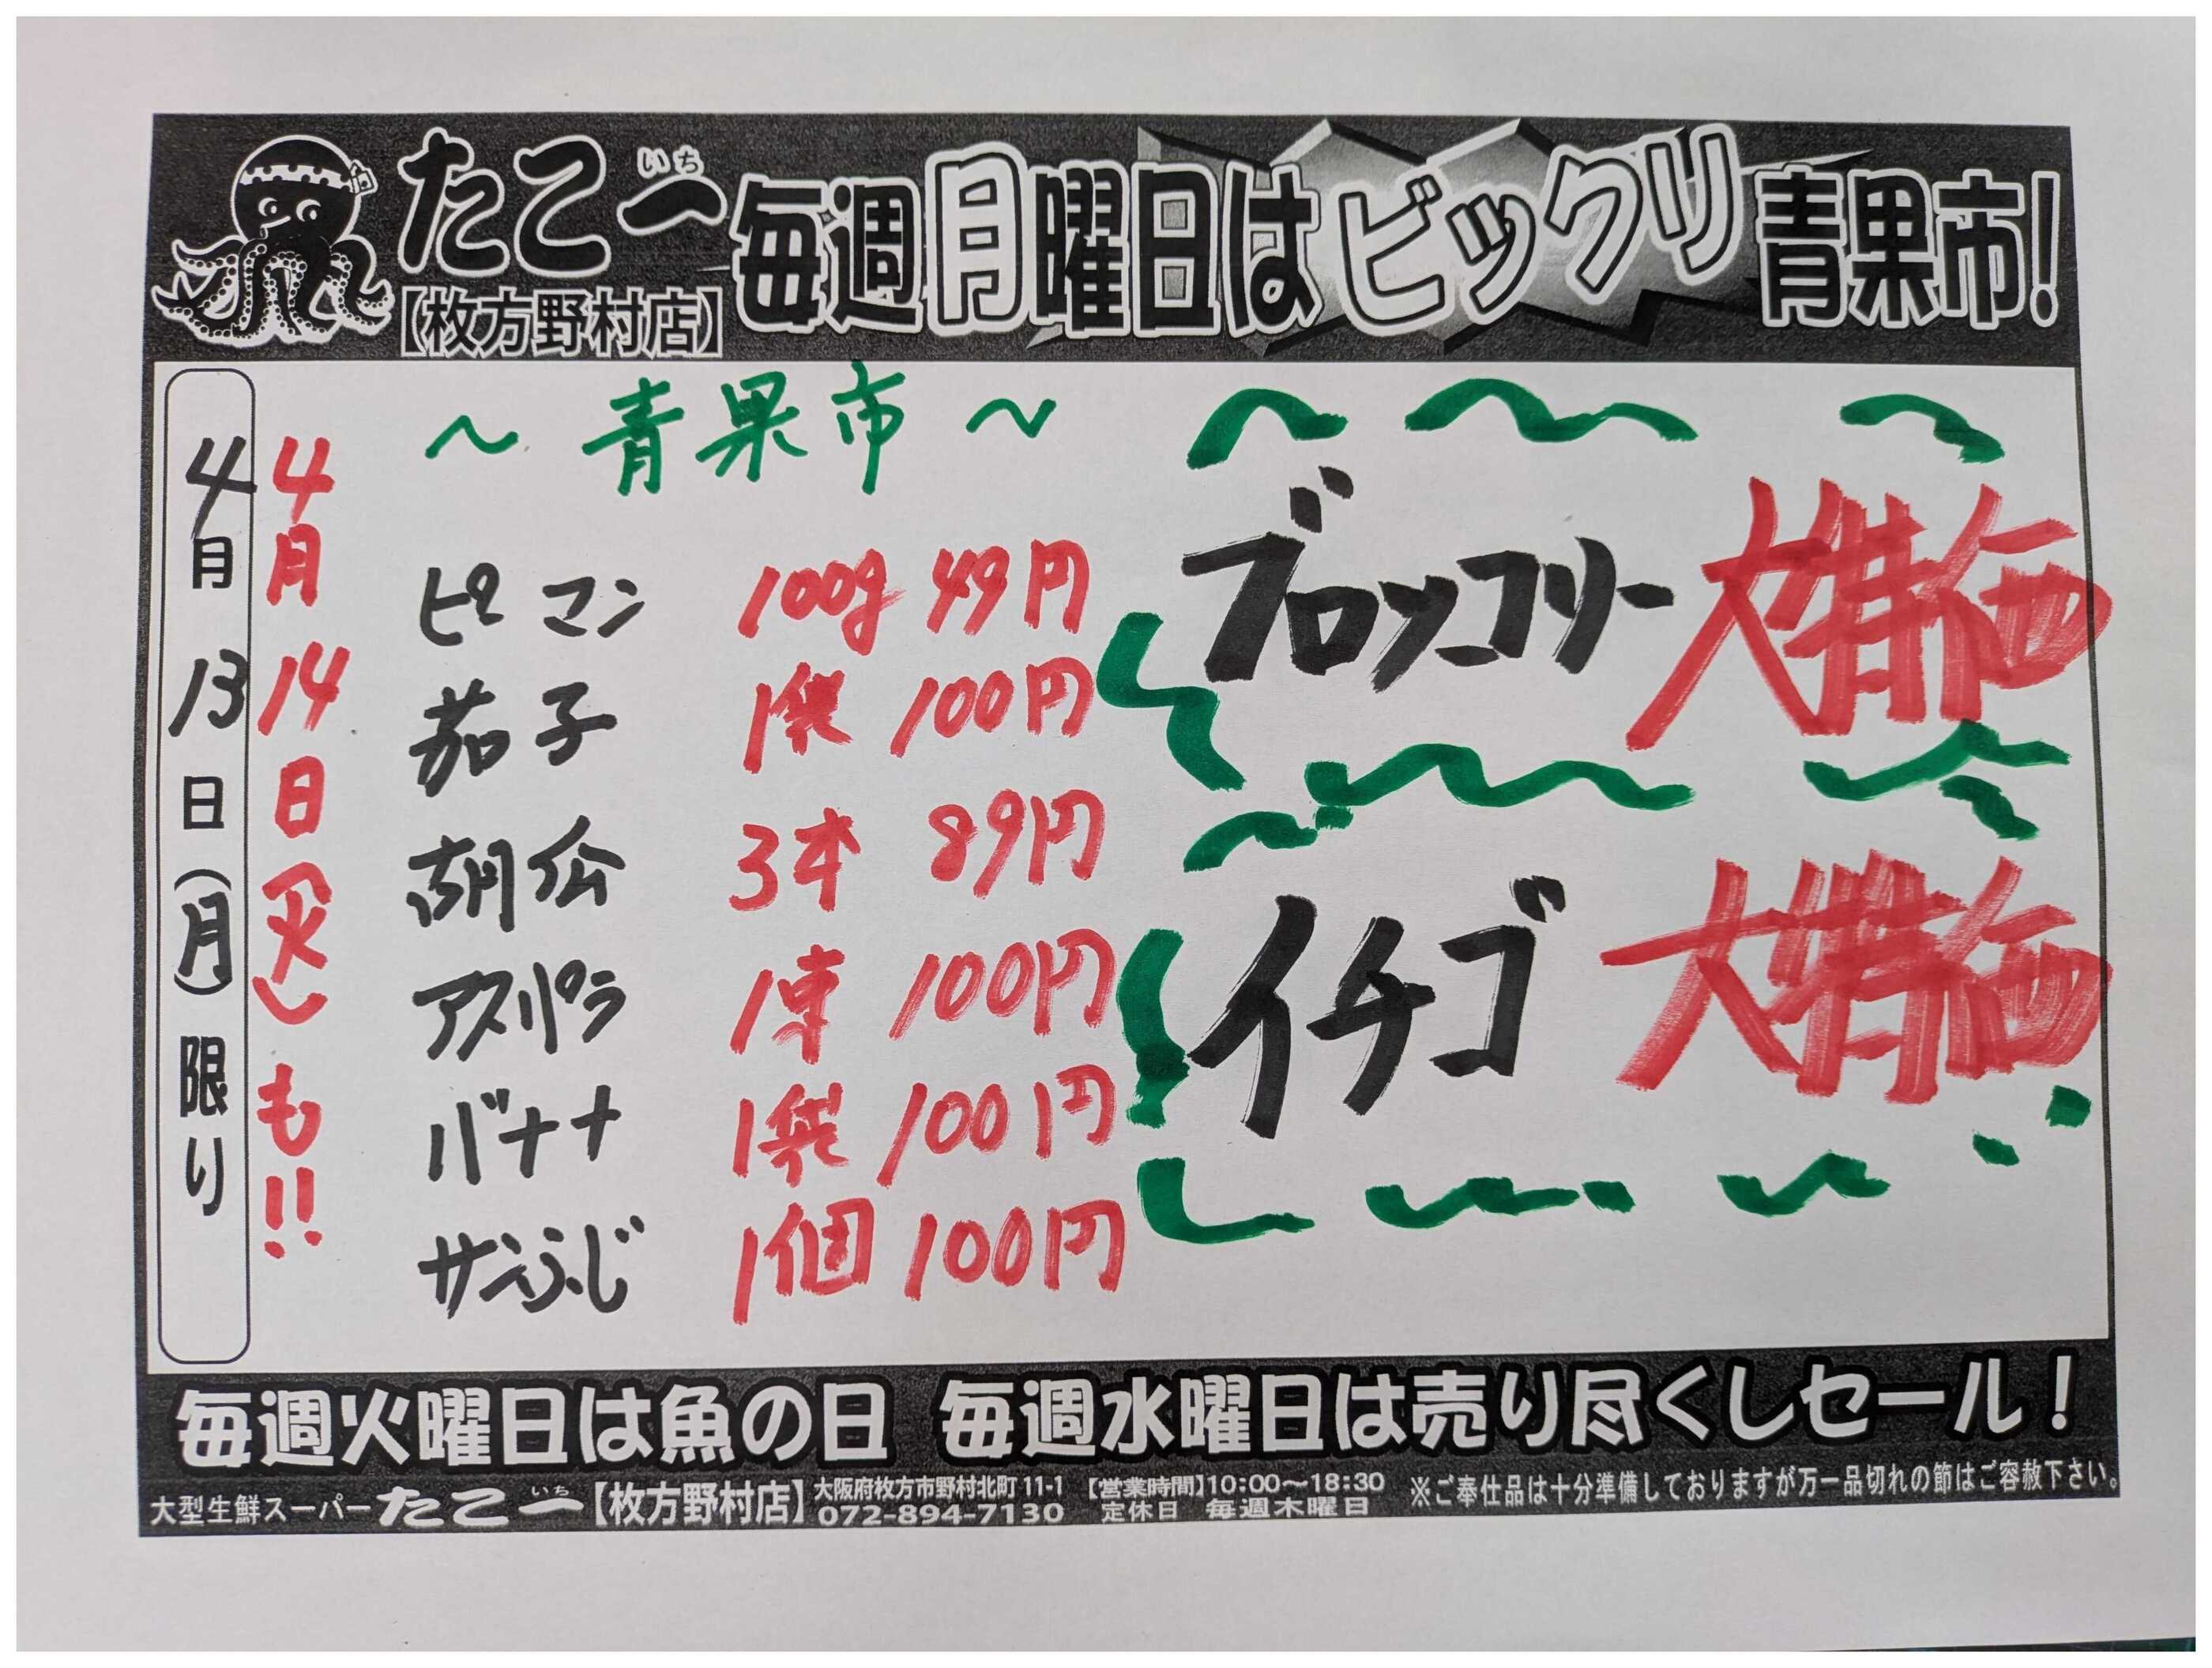 たこ一
いち
【枚方野村店】
毎週月曜日はビックリ青果市!
4月13日(月)限り
4月14日(火)も!!
〜青果市〜
ピーマン 100g 49円
茄子 1袋 100円
胡瓜 3本 89円
アスパラ 1束 100円
バナナ 1袋 100円
サンふじ 1個 100円
ブロッコリー 大特価
イチゴ 大特価
毎週火曜日は魚の日 毎週水曜日は売り尽くしセール!
大型生鮮スーパー たこ一 いち 【枚方野村店】
大阪府枚方市野村北町11-1
072-894-7130
【営業時間】10:00〜18:30
定休日 毎週木曜日
※ご奉仕品は十分準備しておりますが万一品切れの節はご容赦下さい。